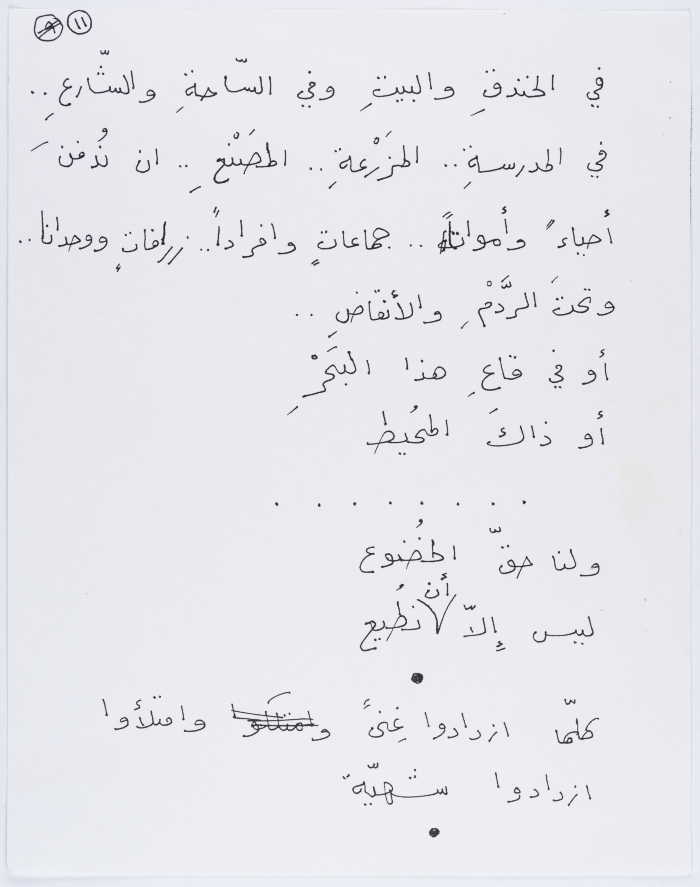 ١١
في الخندقِ والبيتِ وفي السّاحةِ والشّارعِ ..
في المدرسةِ .. المزَرْعةِ .. المصَنْعِ .. ان نُدفنَ
أحياءً وأمواتاً .. جماعاتٍ وافراداً .. زرافاتٍ ووحدانا ..
وتحتَ الردَّمْ والأنقاضِ ..
أو في قاعِ هذا البَحْرِ
أو ذاكَ المحُيط
. . . . . . . .
ولنا حقّ الخُضوع
ليس إلاّ أن نطُيع
•
كلمّا ازدادوا غِنىً وامتلأوا
ازدادوا شهيّة
•